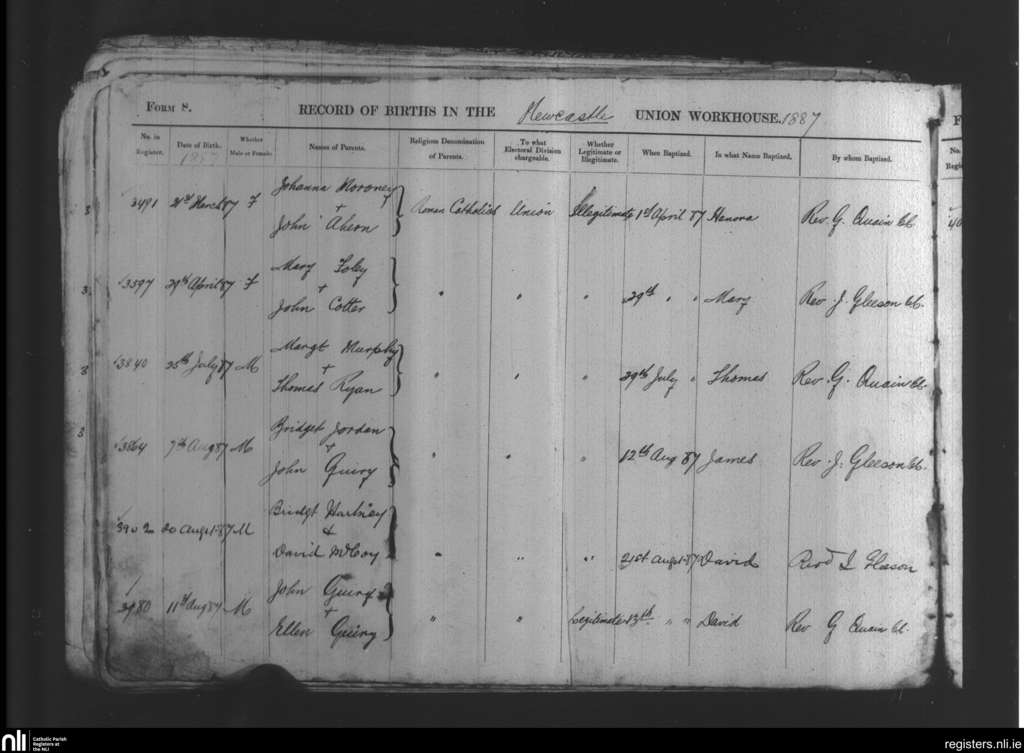 FORM 8. RECORD OF BIRTHS IN THE Newcastle UNION WORKHOUSE. 1887
No. in Register. Date of Birth. 1887 Whether Male or Female. Names of Parents. Religious Denomination of Parents. To what Electoral Division chargeable. Whether Legitimate or Illegitimate. When Baptized. In what Name Baptized. By whom Baptized.
Johanna Moroney
3 3491 21st March 87 F + Roman Catholics Union Illegitimate 1st April 87 Hanora Rev. G. Quain CC
John Ahern
Mary Foley
3 3597 29th April 87 F + " " " 29th " " Mary Rev. J. Gleeson CC.
John Cotter
Margt Murphy
3 3840 25th July 87 M + " " " 29th July " Thomas Rev. G. Quain CC.
Thomas Ryan
Bridget Jordan
3 3864 7th Aug 87 M + " " " 12th Aug 87 James Rev. J. Gleeson CC.
John Quiry
Bridgt Hartney
3902 20 Augst. 87 M & " " " 21st Augst. 87 David Revd L Gleason
David McCoy
John Guiry
11th Aug 87 M + " " Legitimate 13th " " David Rev G Quain CC.
Ellen Guiry
F
No.
Regis
40
nli Catholic Parish
Registers at
the NLI
registers.nli.ie